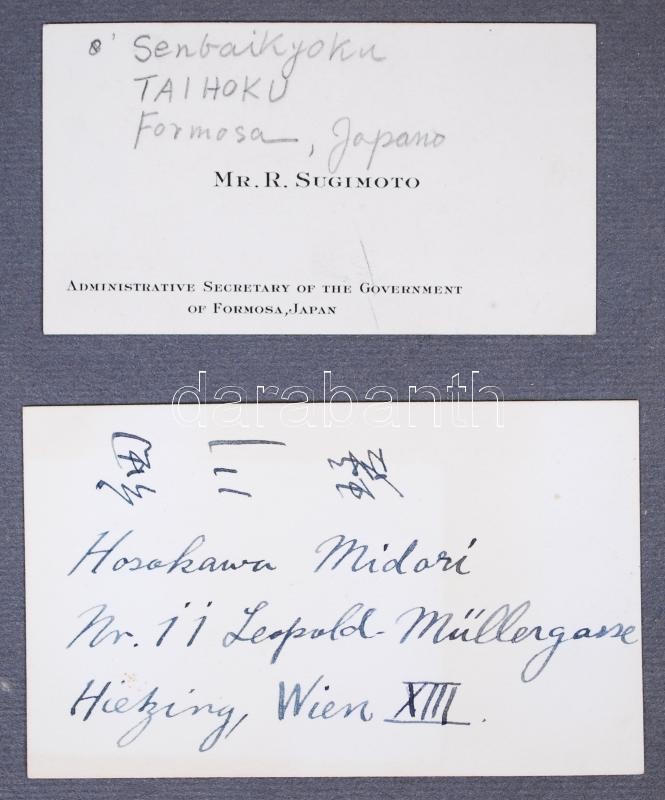 Senbaikyoku
TAIHOKU
Formosa, Japano
MR. R. SUGIMOTO
ADMINISTRATIVE SECRETARY OF THE GOVERNMENT
OF FORMOSA, JAPAN
darabanth
細川
Hosokawa Midori
Nr. 11 Leopold-Müllergasse
Hietzing, Wien XIII.